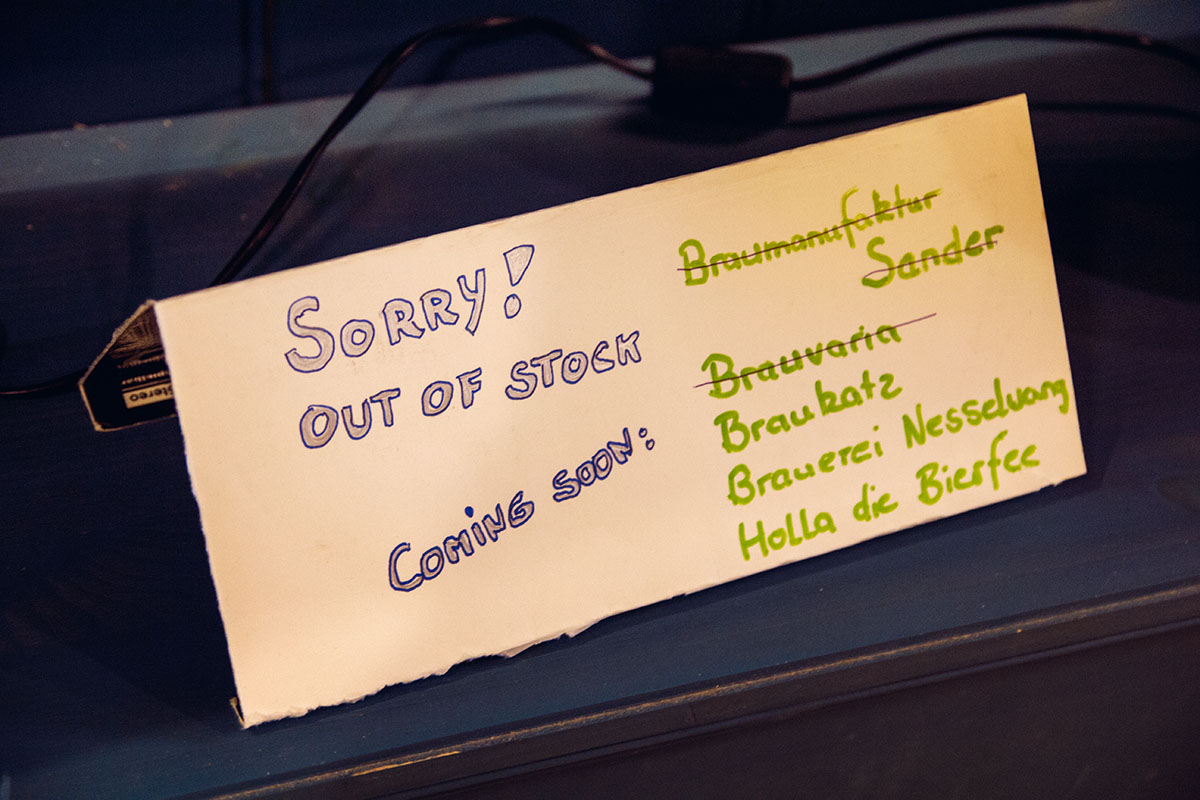 SORRY!
OUT OF STOCK
COMING SOON:
Braumanufaktur
Sander
Brauvaria
Braukatz
Brauerei Nesselwang
Holla die Bierfee
Stereo